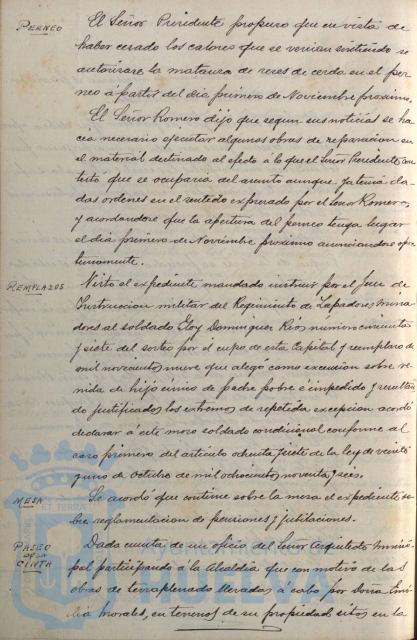 PERNEO
El Señor Presidente propuso que en vista de
haber cesado los calores que se venian sintiendo se
autorizare la matanza de reses de cerda en el per
neo á partir del dia primero de Noviembre proximo.
El Señor Romero dijo que segun sus noticias se ha
cia necesario ejecutar algunas obras de reparacion en
el material destinado al efecto á lo que el Señor Presidente con
testó que se ocuparia del asunto aunque ya tenia da
das ordenes en el sentido expresado por el Señor Romero,
y acordandose que la apertura del perneo tenga lugar
el dia primero de Noviembre proximo anunciandose opor
tunamente.
REMPLAZOS
Visto el expediente mandado instruir por el Juez de
Instruccion militar del Regimiento de Zapadores mina
dores al soldado Eloy Dominguez Rios numero cincuenta
y siete del sorteo por el cupo de esta Capital y reemplazo de
mil novecientos nueve que alegó como excepcion sobre ve
nida de hijo unico de padre pobre é impedido y resultan
do justificados los extremos de repetida excepcion acordó
declarar á este mozo soldado condicional conforme al
caso primero del articulo ochenta y siete de la ley de veinti
guno de Octubre de mil ochocientos noventa y seis.
MESA
Se acordó que continue sobre la mesa el expediente so
bre reglamentacion de pensiones y jubilaciones.
PASEO
DE LA
CINTA
Dada cuenta de un oficio del Señor Arquitecto Munici
pal participando á la Alcaldia que con motivo de las
obras de terraplenado llevadas á cabo por Doña Emi
lia Morales, en terrenos de su propiedad sitos en la